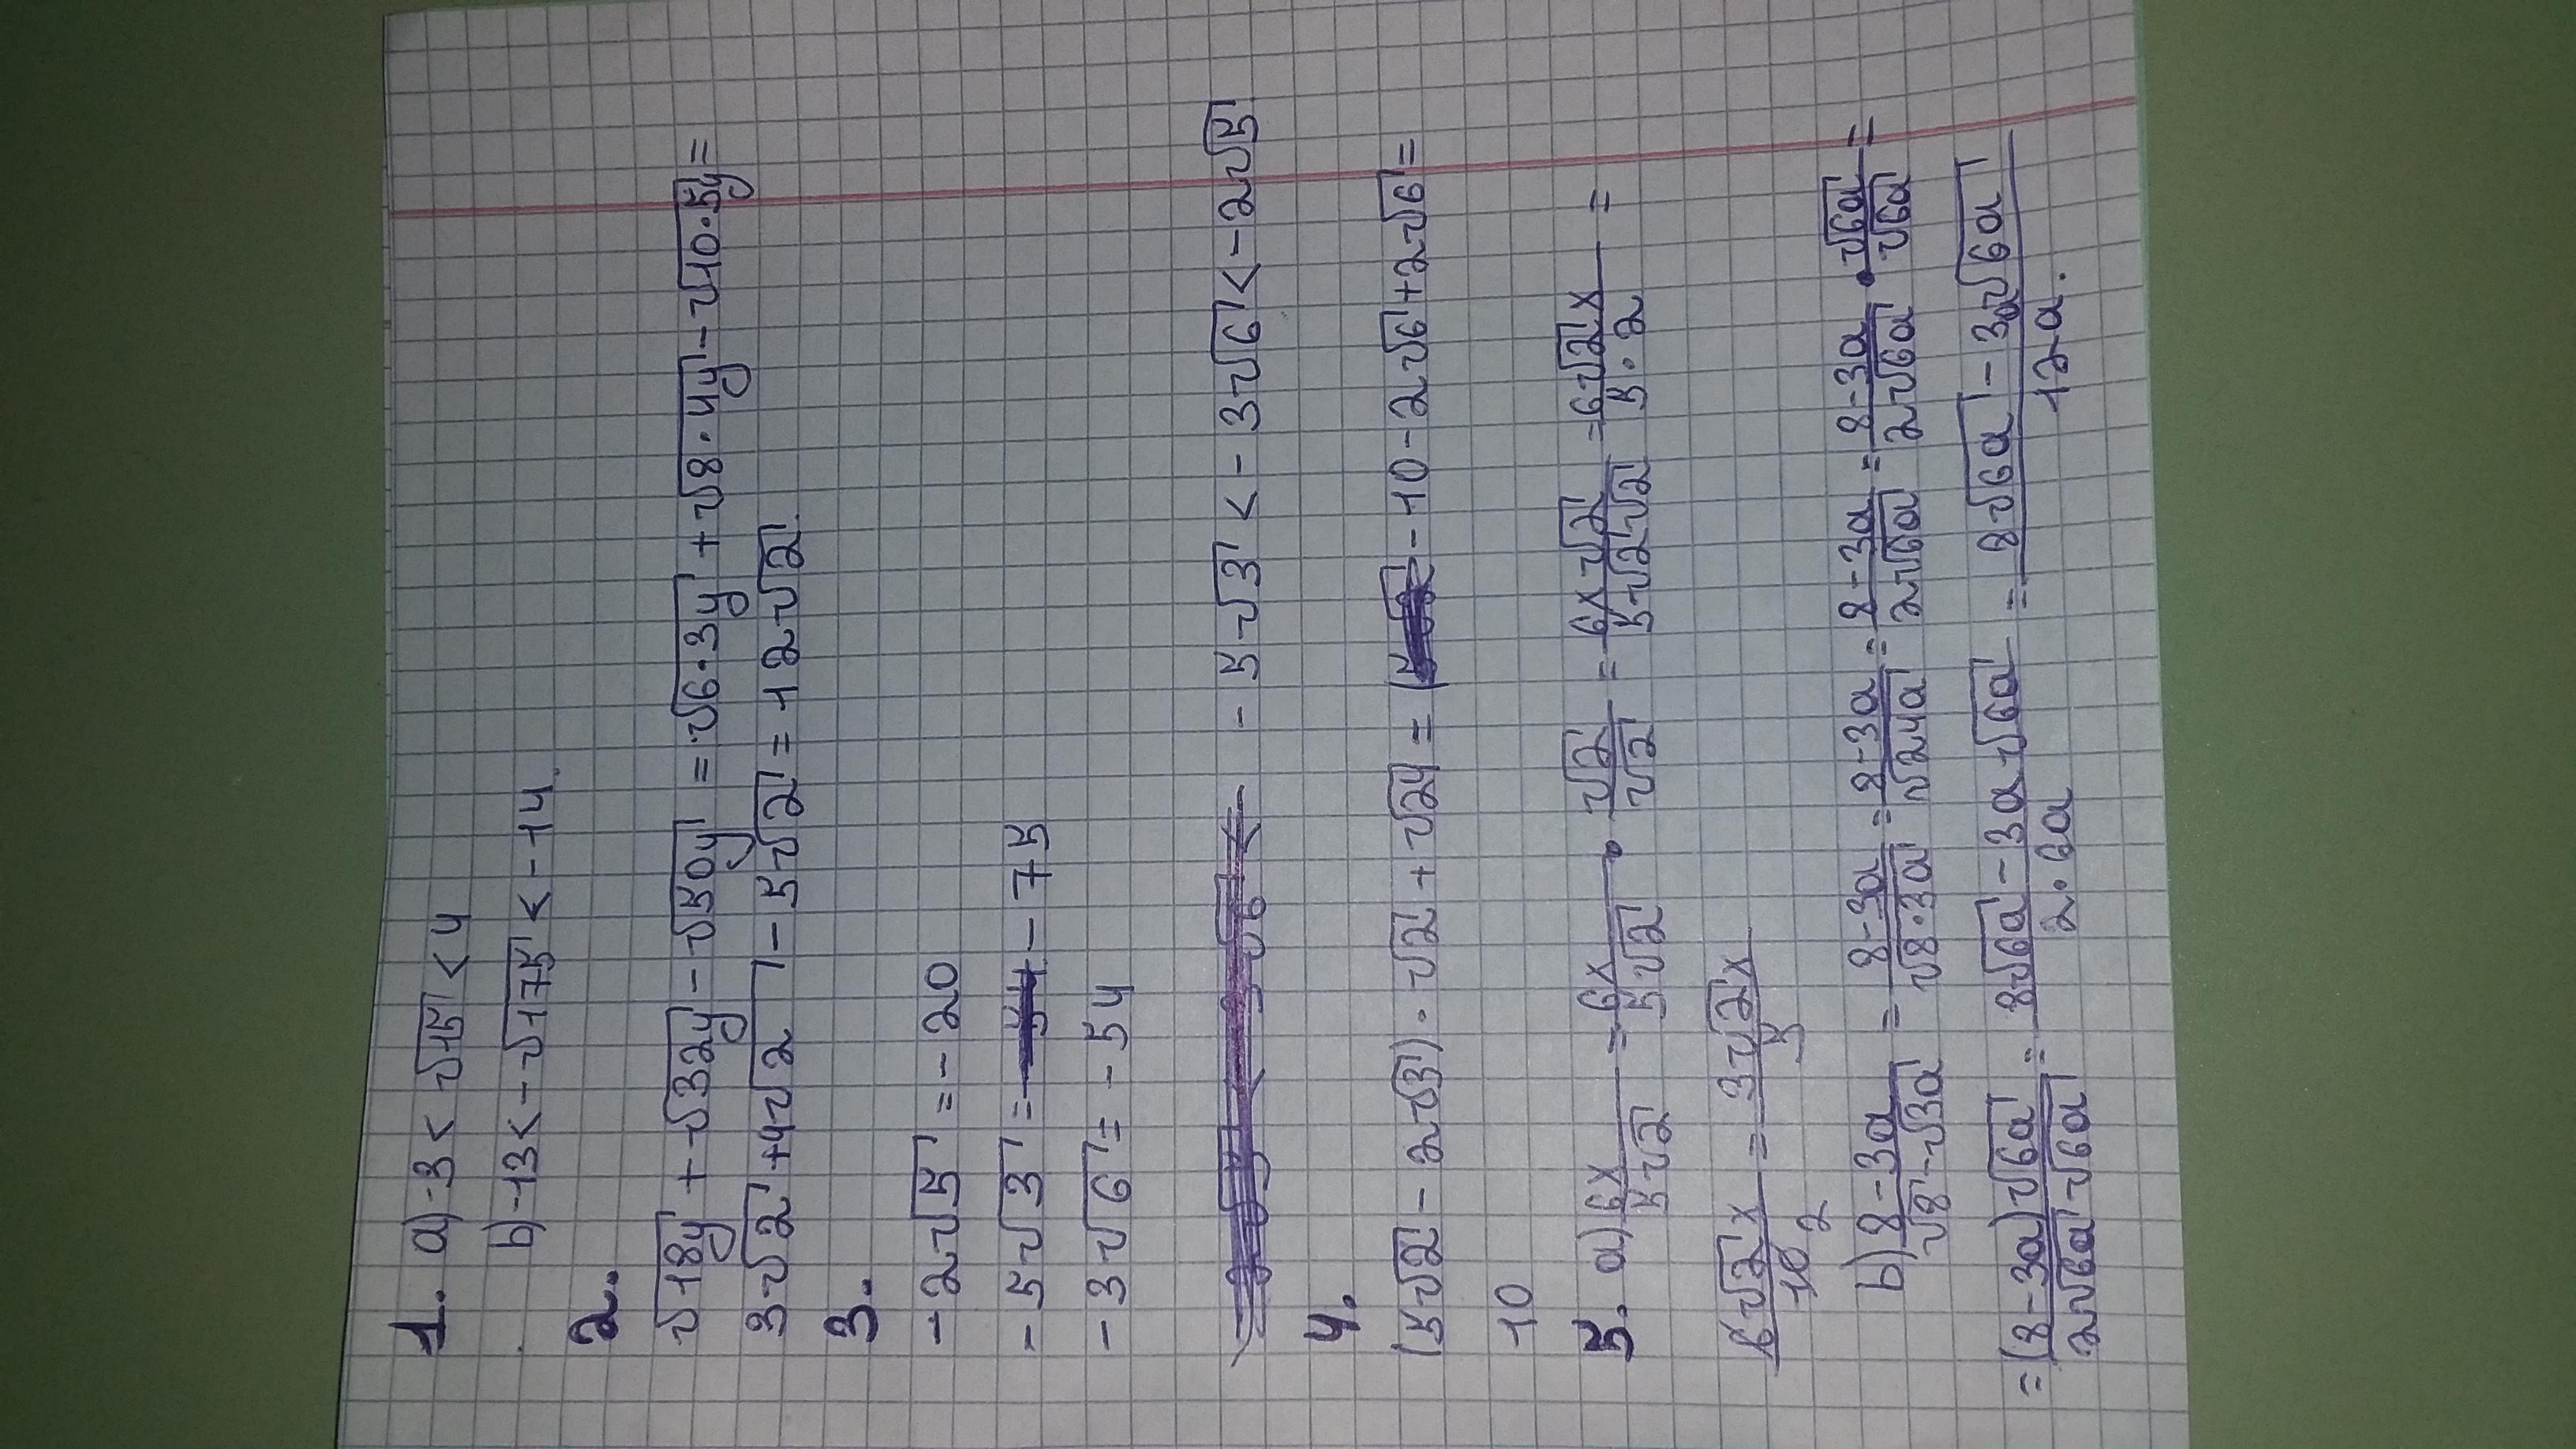 1. a) -3 < √15 < 4
b) -13 < -√175 < -14.
2.
√18y + √32y - √50y = √6·3y + √8·4y - √10·5y =
3√2 + 4√2 - 5√2 = 12√2.
3.
-2√5 = -20
-5√3 = -75
-3√6 = -54
-5√3 < -3√6 < -2√5
4.
(5√2 - 2√3) · √2 + √24 = -10 - 2√6 + 2√6 =
10
5. a) 6x/5√2 = 6x/5√2 · √2/√2 = 6x√2/5√2√2 = 6√2x/5·2 =
6√2x/10 2 = 3√2x/5
b) 8-3a/√8-√3a = 8-3a/√8·3a = 8-3a/√24a = 8-3a/2√6a = 8-3a/2√6a · √6a/√6a =
= (8-3a)√6a/2√6a√6a = 8√6a-3a√6a/2·6a = 8√6a-3a√6a/12a.